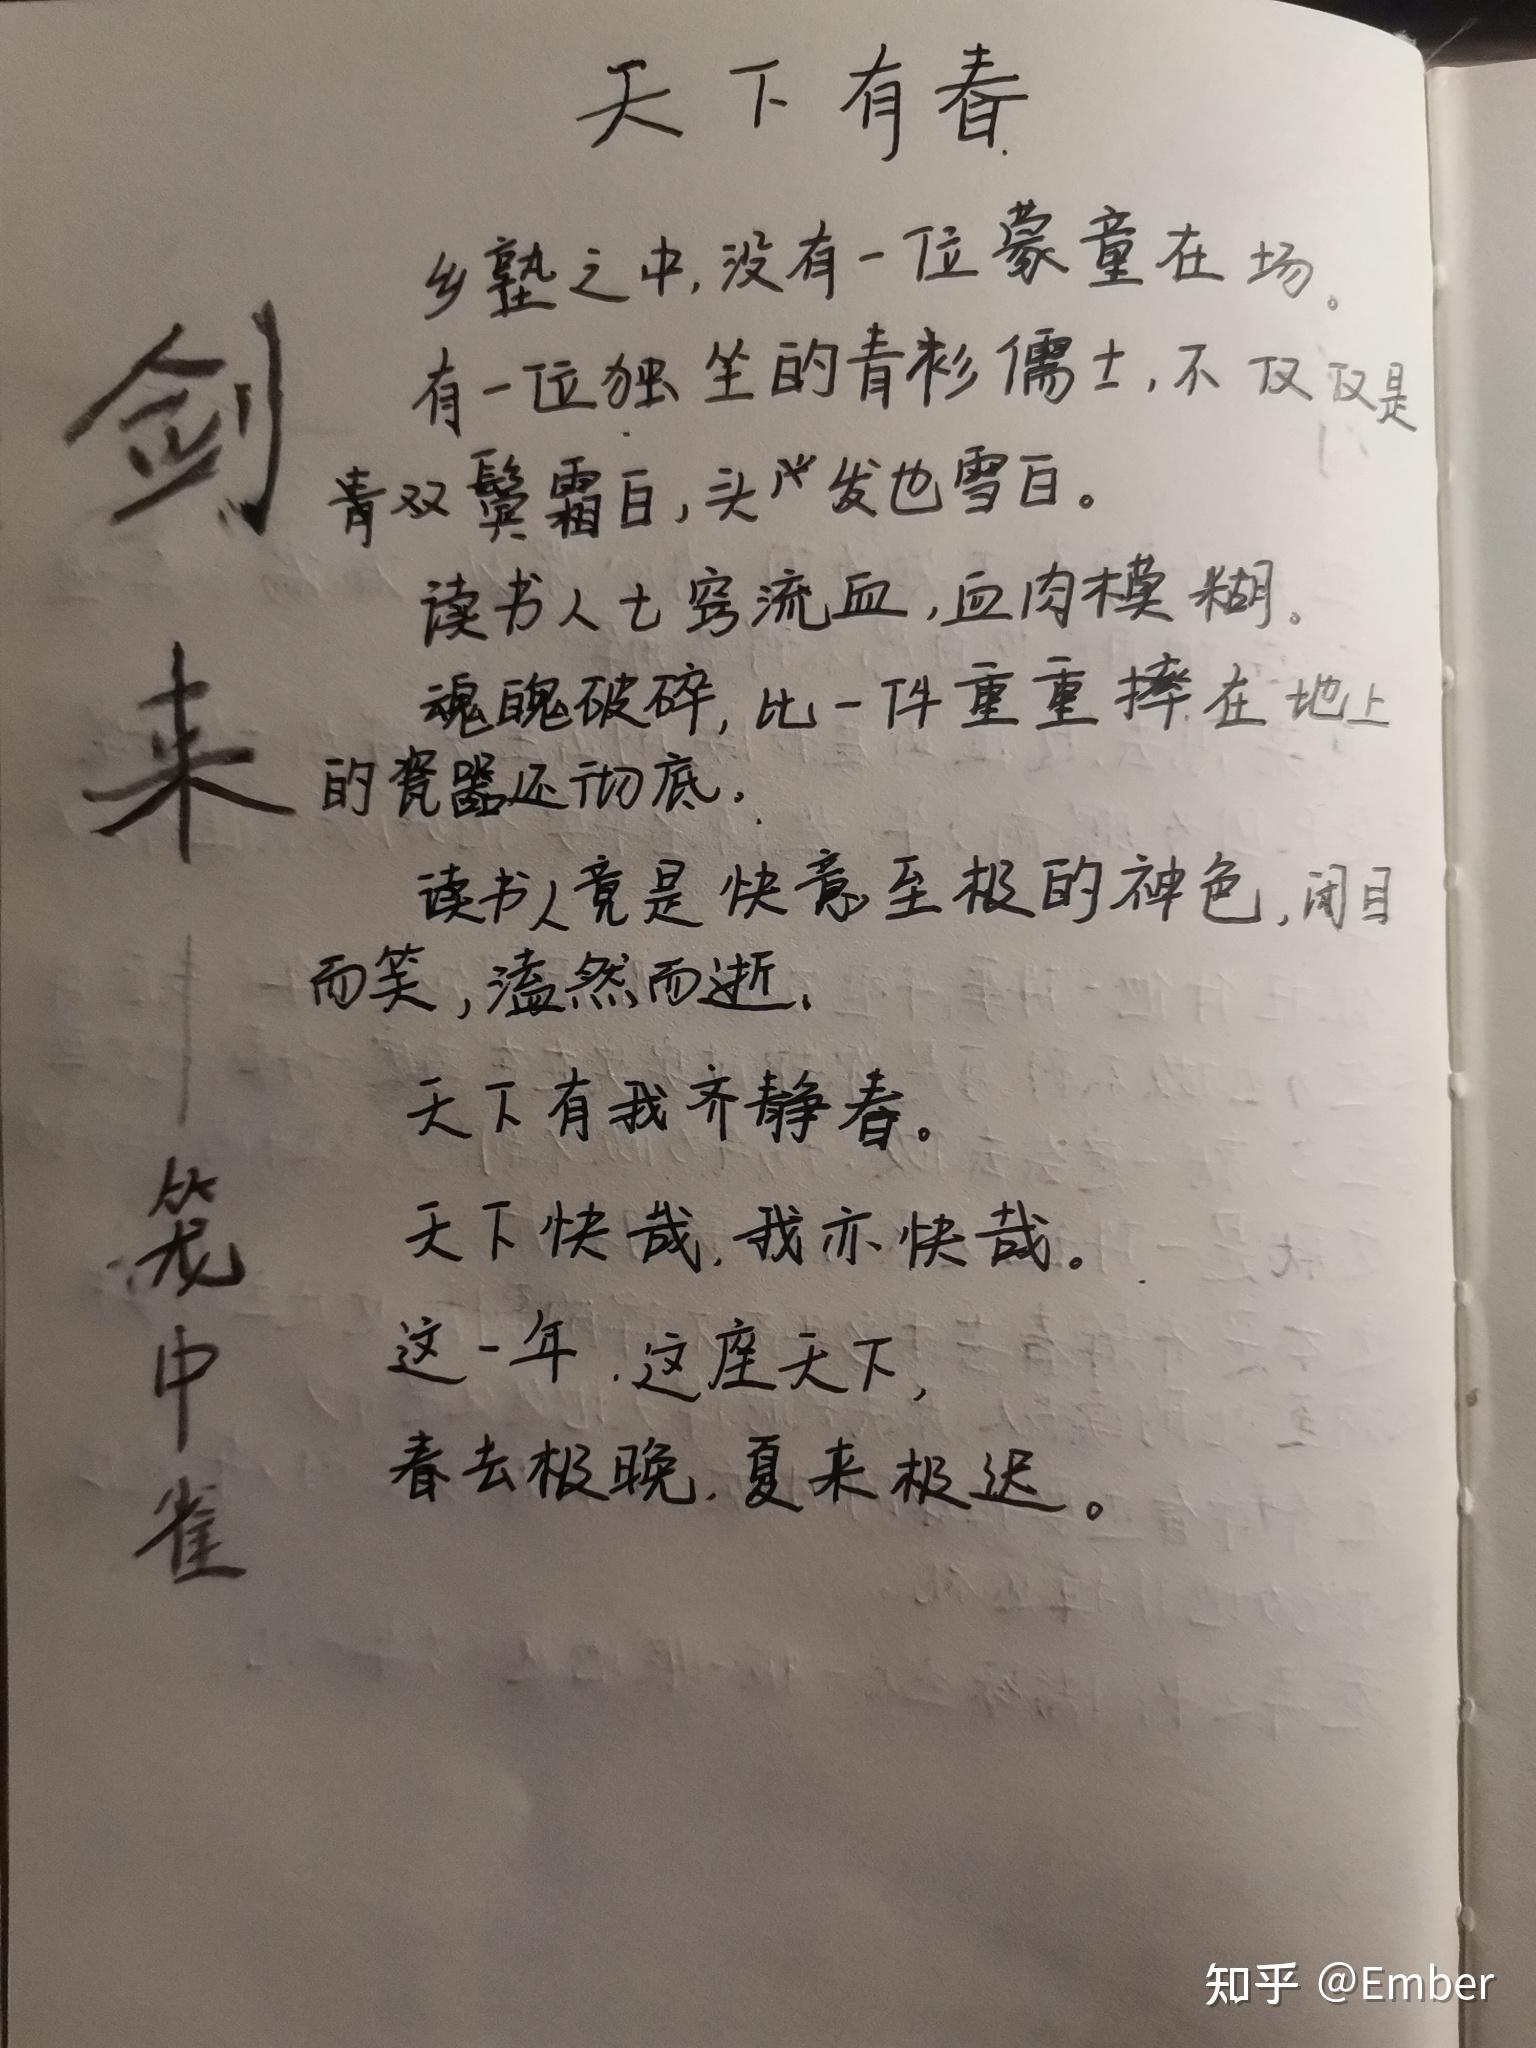 天下有春
乡塾之中,没有一位蒙童在场。
有一位独坐的青衫儒士,不仅仅是
青双鬓霜白,头发也雪白。
读书人七窍流血,血肉模糊。
魂魄破碎,比一件重重摔在地上
的瓷器还彻底.
读书人竟是快意至极的神色,闭目
而笑,溘然而逝.
天下有我齐静春。
天下快哉,我亦快哉。
这一年.这座天下,
春去极晚.夏来极迟。
剑来——笼中雀
知乎 @Ember